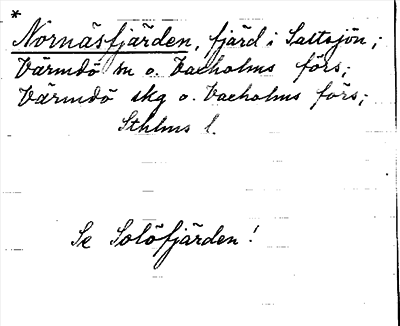 *
Nornäsfjärden, fjärd i Saltsjön;
Värmdö sn o. Vaxholms förs;
Värmdö skg o. Vaxholms förs;
Sthlms l.
Se Solöfjärden!